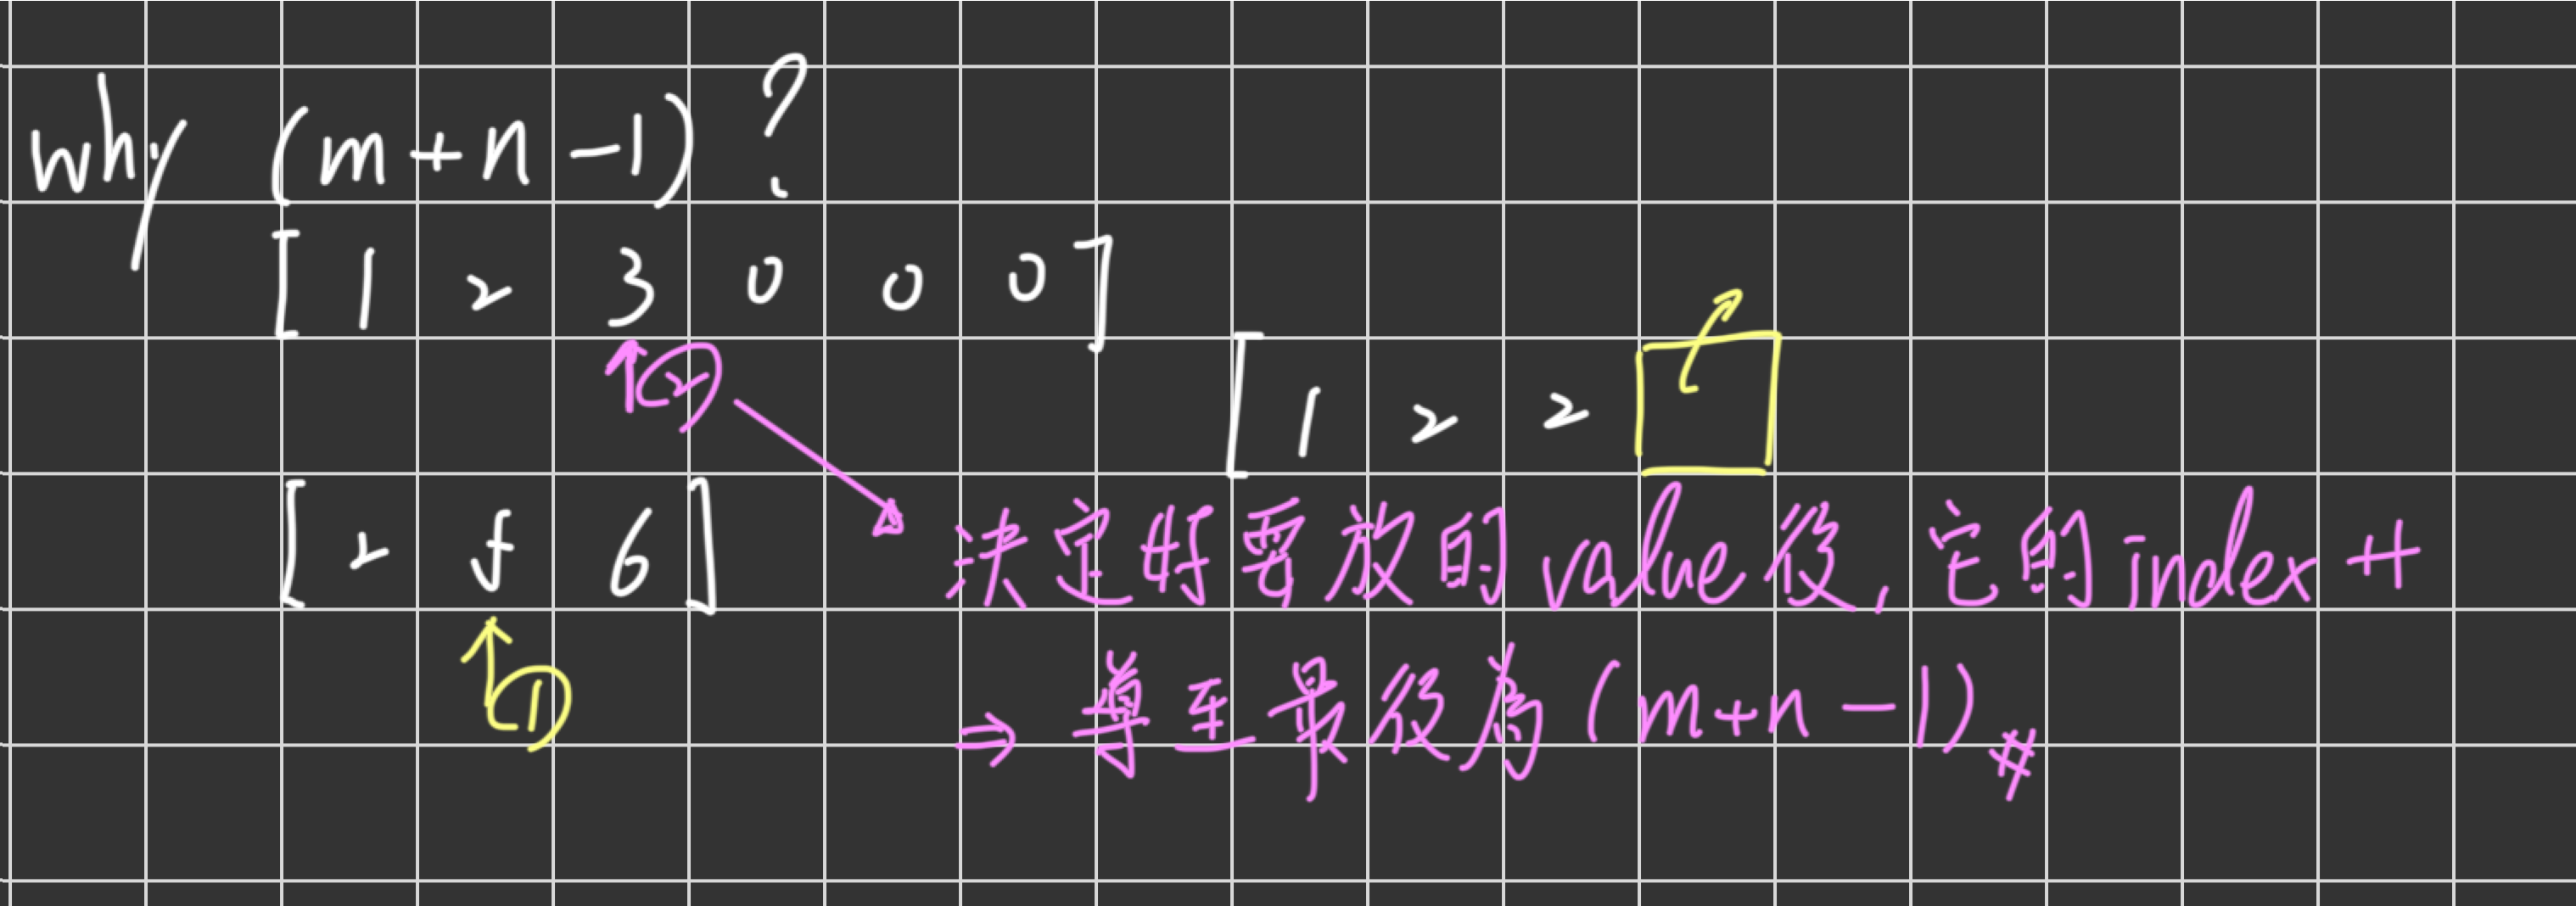 why (m+n-1)?
[1 2 3 0 0 0]
②
[1 2 2
[2 5 6]
①
決定好要放的value後,它的index++
⇒ 導至最後為(m+n-1)#